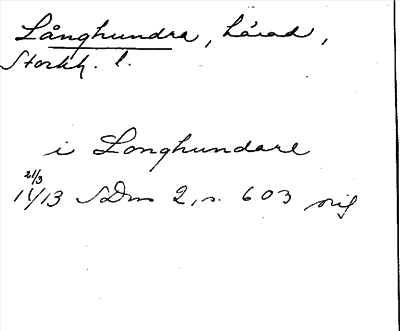 Långhundra, härad,
Stockh. l.
i Longhundare
21/3
1413 SDns 2, s. 603 orig